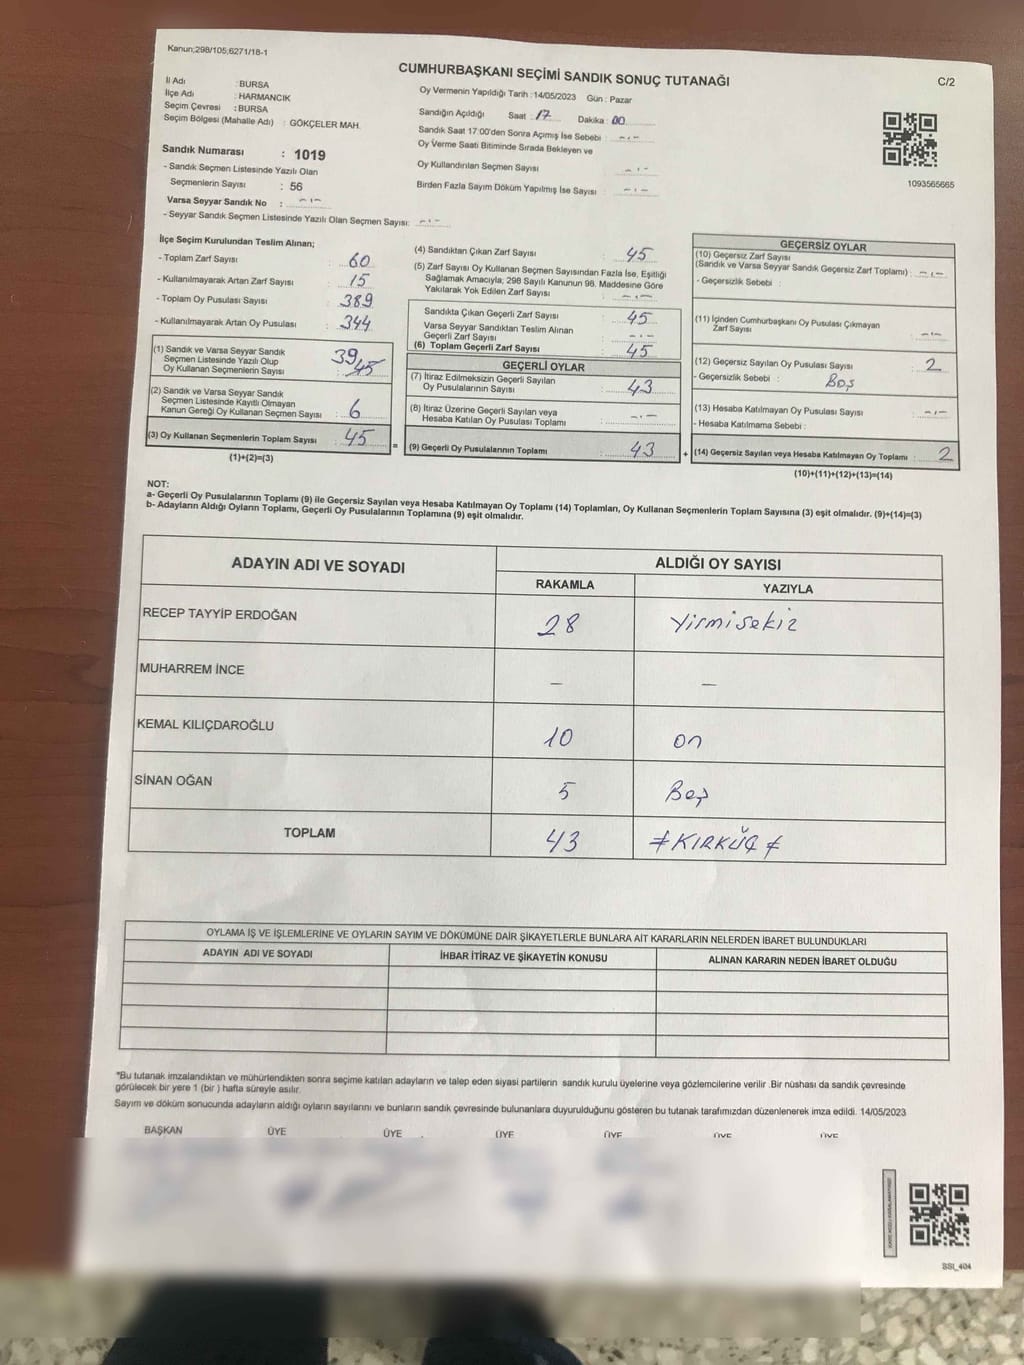 Kanun;298/105;6271/18-1
CUMHURBAŞKANI SEÇİMİ SANDIK SONUÇ TUTANAĞI
C/2
İl Adı : BURSA
İlçe Adı : HARMANCIK
Seçim Çevresi : BURSA
Seçim Bölgesi (Mahalle Adı) : GÖKÇELER MAH.
Sandık Numarası : 1019
- Sandık Seçmen Listesinde Yazılı Olan
Seçmenlerin Sayısı : 56
Varsa Seyyar Sandık No : - ı -
- Seyyar Sandık Seçmen Listesinde Yazılı Olan Seçmen Sayısı: - ı -
Oy Vermenin Yapıldığı Tarih :14/05/2023 Gün : Pazar
Sandığın Açıldığı Saat : 17 Dakika : 00
Sandık Saat 17:00'den Sonra Açımış İse Sebebi : - ı -
Oy Verme Saati Bitiminde Sırada Bekleyen ve
Oy Kullandırılan Seçmen Sayısı - ı -
Birden Fazla Sayım Döküm Yapılmış İse Sayısı : - ı -
1093565665
İlçe Seçim Kurulundan Teslim Alınan;
- Toplam Zarf Sayısı : 60
- Kullanılmayarak Artan Zarf Sayısı : 15
- Toplam Oy Pusulası Sayısı : 389
- Kullanılmayarak Artan Oy Pusulası : 344
(1) Sandık ve Varsa Seyyar Sandık
Seçmen Listesinde Yazılı Olup
Oy Kullanan Seçmenlerin Sayısı : 39 45
(2) Sandık ve Varsa Seyyar Sandık
Seçmen Listesinde Kayıtlı Olmayan
Kanun Gereği Oy Kullanan Seçmen Sayısı : 6
(3) Oy Kullanan Seçmenlerin Toplam Sayısı : 45
(1)+(2)=(3)
=
(4) Sandıktan Çıkan Zarf Sayısı : 45
(5) Zarf Sayısı Oy Kullanan Seçmen Sayısından Fazla İse, Eşitliği
Sağlamak Amacıyla; 298 Sayılı Kanunun 98. Maddesine Göre
Yakılarak Yok Edilen Zarf Sayısı : - ı -
Sandıkta Çıkan Geçerli Zarf Sayısı : 45
Varsa Seyyar Sandıktan Teslim Alınan
Geçerli Zarf Sayısı : - ı -
(6) Toplam Geçerli Zarf Sayısı : 45
GEÇERLİ OYLAR
(7) İtiraz Edilmeksizin Geçerli Sayılan
Oy Pusulalarının Sayısı : 43
(8) İtiraz Üzerine Geçerli Sayılan veya
Hesaba Katılan Oy Pusulası Toplamı : - ı -
(9) Geçerli Oy Pusulalarının Toplamı : 43
+
GEÇERSİZ OYLAR
(10) Geçersiz Zarf Sayısı
(Sandık ve Varsa Seyyar Sandık Geçersiz Zarf Toplamı) : - ı -
- Geçersizlik Sebebi :
(11) İçinden Cumhurbaşkanı Oy Pusulası Çıkmayan
Zarf Sayısı : - ı -
(12) Geçersiz Sayılan Oy Pusulası Sayısı : 2
- Geçersizlik Sebebi : Boş
(13) Hesaba Katılmayan Oy Pusulası Sayısı : - ı -
- Hesaba Katılmama Sebebi :
(14) Geçersiz Sayılan veya Hesaba Katılmayan Oy Toplamı : 2
(10)+(11)+(12)+(13)=(14)
NOT:
a- Geçerli Oy Pusulalarının Toplamı (9) ile Geçersiz Sayılan veya Hesaba Katılmayan Oy Toplamı (14) Toplamları, Oy Kullanan Seçmenlerin Toplam Sayısına (3) eşit olmalıdır. (9)+(14)=(3)
b- Adayların Aldığı Oyların Toplamı, Geçerli Oy Pusulalarının Toplamına (9) eşit olmalıdır.
ADAYIN ADI VE SOYADI
ALDIĞI OY SAYISI
RAKAMLA YAZIYLA
RECEP TAYYİP ERDOĞAN 28 Yirmisekiz
MUHARREM İNCE - -
KEMAL KILIÇDAROĞLU 10 On
SİNAN OĞAN 5 Beş
TOPLAM 43 ≠KIRKÜÇ≠
OYLAMA İŞ VE İŞLEMLERİNE VE OYLARIN SAYIM VE DÖKÜMÜNE DAİR ŞİKAYETLERLE BUNLARA AİT KARARLARIN NELERDEN İBARET BULUNDUKLARI
ADAYIN ADI VE SOYADI İHBAR İTİRAZ VE ŞİKAYETİN KONUSU ALINAN KARARIN NEDEN İBARET OLDUĞU
*Bu tutanak imzalandıktan ve mühürlendikten sonra seçime katılan adayların ve talep eden siyasi partilerin sandık kurulu üyelerine veya gözlemcilerine verilir .Bir nüshası da sandık çevresinde
görülecek bir yere 1 (bir ) hafta süreyle asılır.
Sayım ve döküm sonucunda adayların aldığı oyların sayılarını ve bunların sandık çevresinde bulunanlara duyurulduğunu gösteren bu tutanak tarafımızdan düzenlenerek imza edildi. 14/05/2023
BAŞKAN ÜYE ÜYE ÜYE ÜYE ÜYE ÜYE
SSI_404